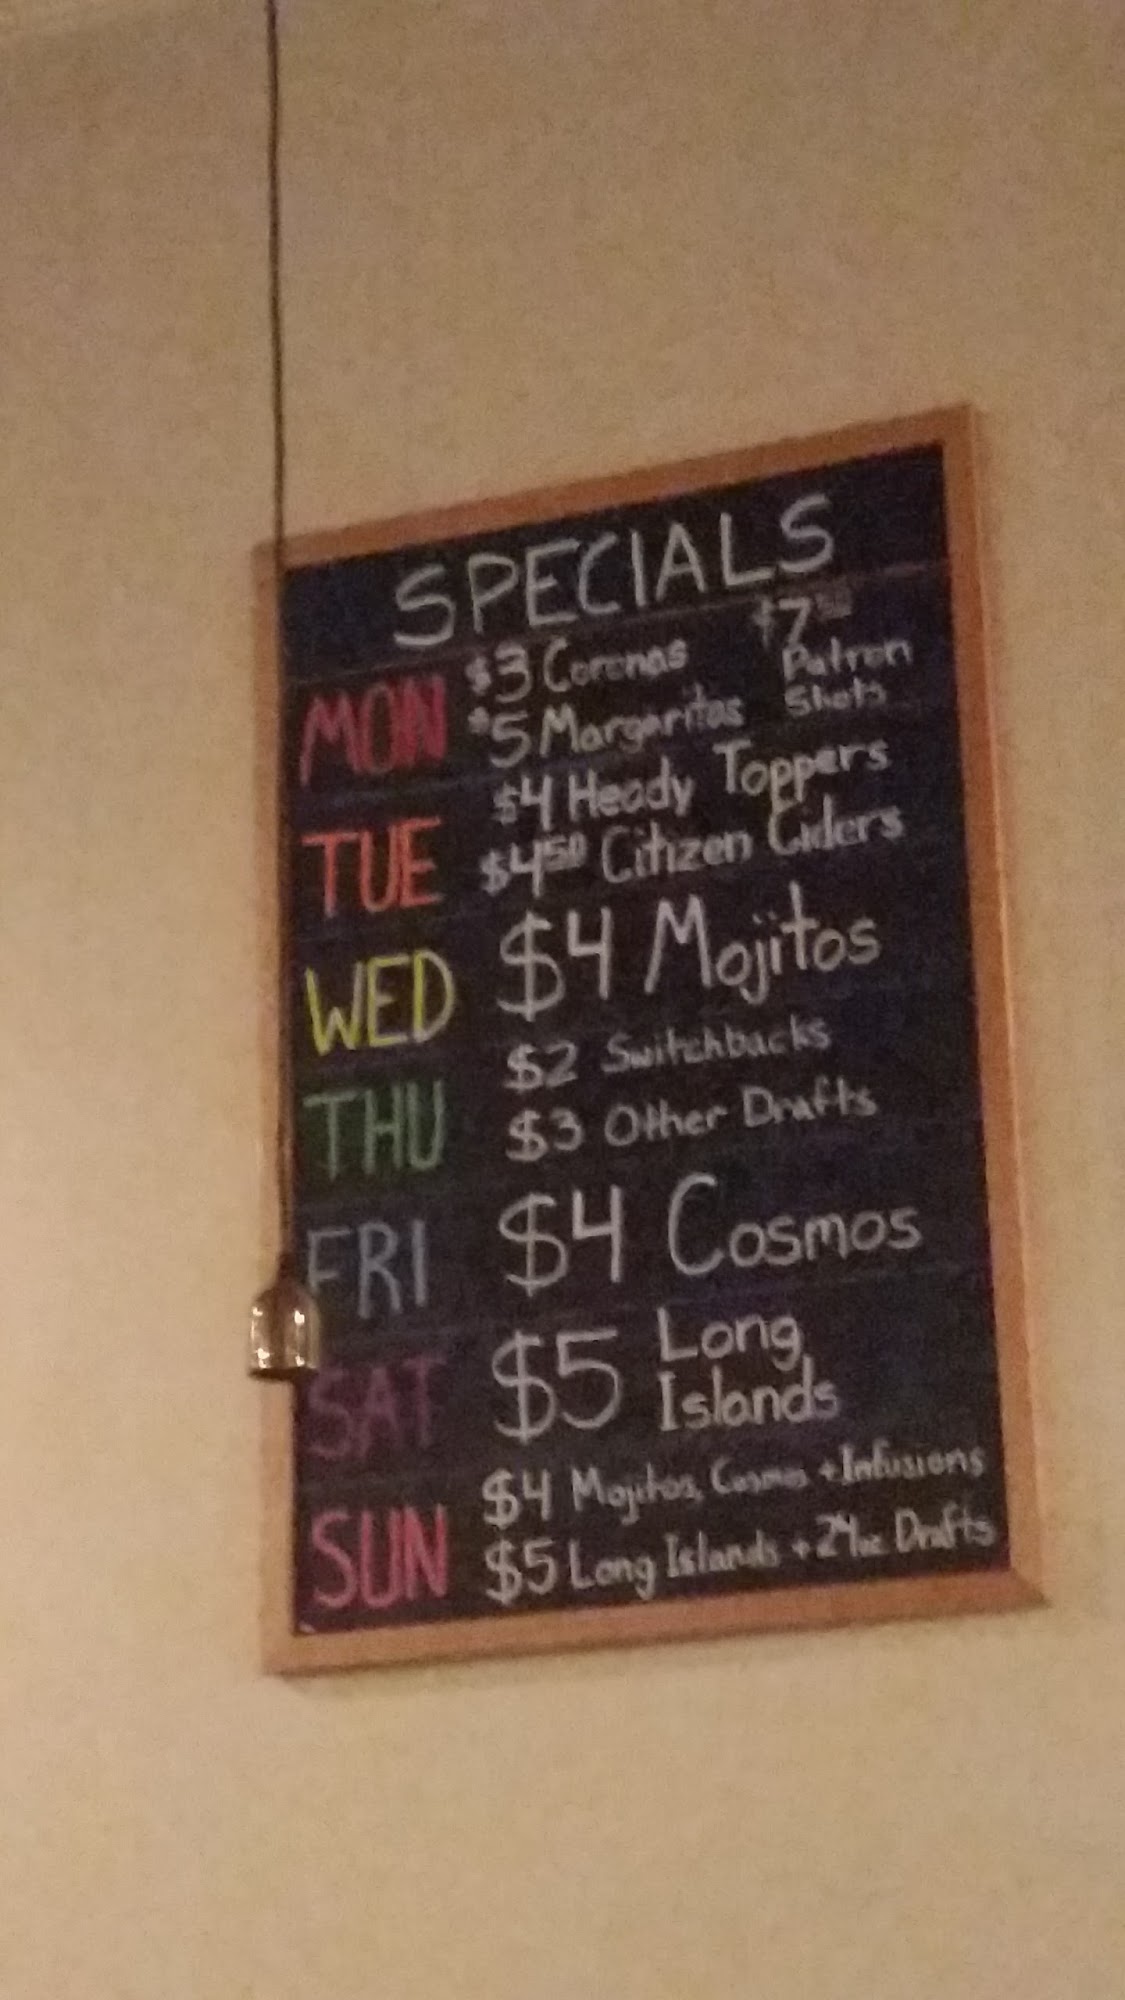 SPECIALS
MON $3 Coronas $7
$5 Margaritas Patron Shots
TUE $4 Heady Toppers
$4.50 Citizen Ciders
WED $4 Mojitos
THU $2 Switchbacks
$3 Other Drafts
FRI $4 Cosmos
SAT $5 Long Islands
SUN $4 Mojitos, Cosmos + Infusions
$5 Long Islands + 24oz Drafts